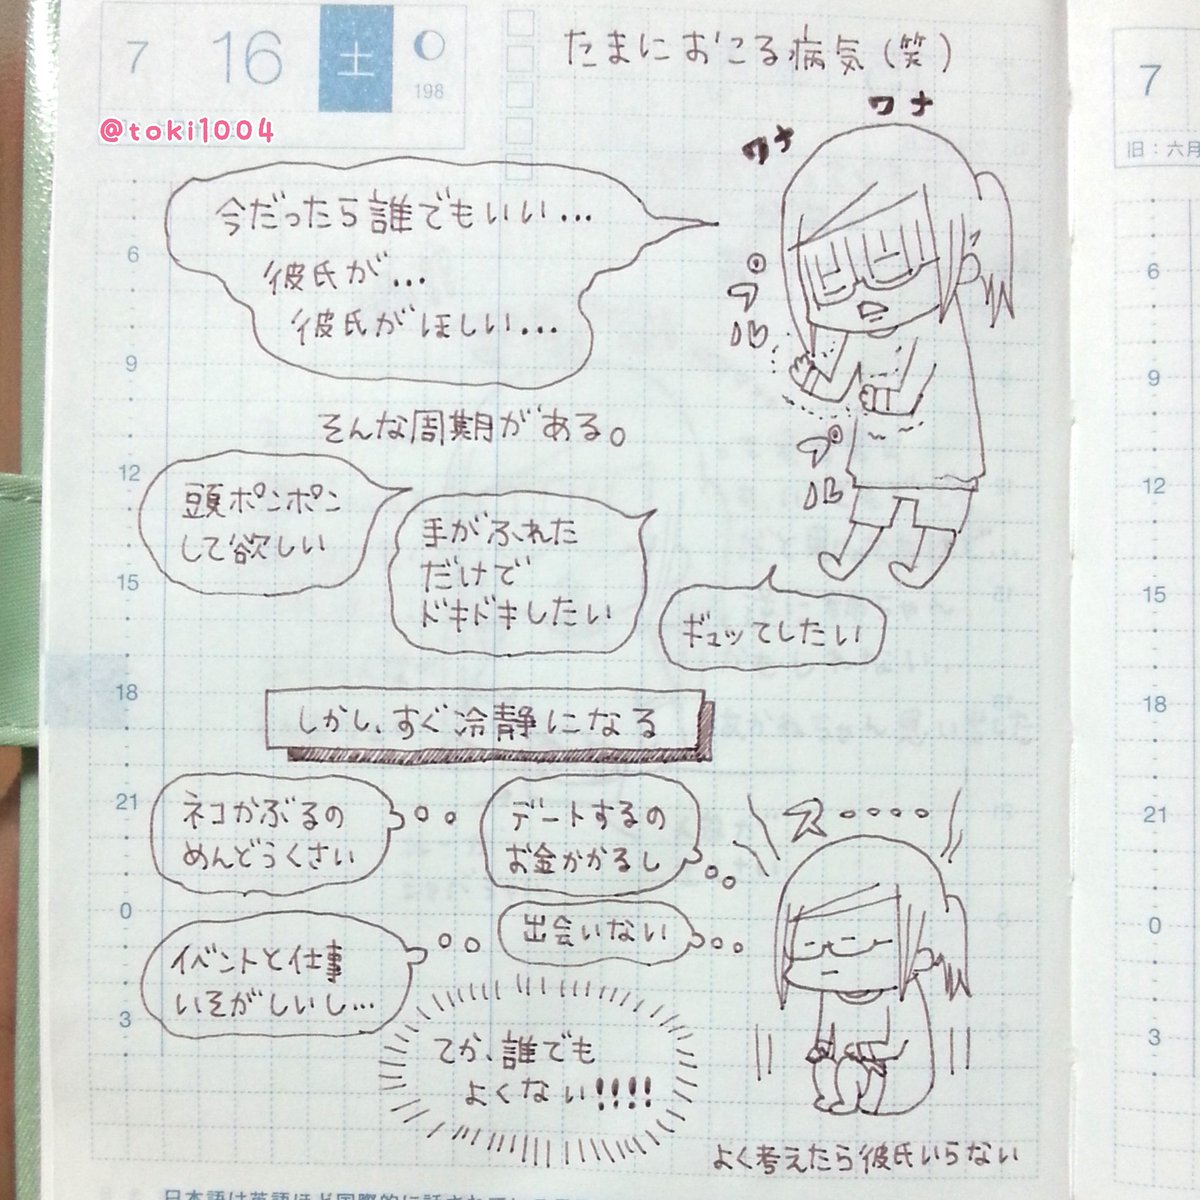 7 16 土
198
@toki1004
たまにおこる病気(笑)
ワナ
ワナ
今だったら誰でもいい…
彼氏が…
彼氏がほしい…
そんな周期がある。
頭ポンポン
して欲しい
手がふれた
だけで
ドキドキしたい
ギュッてしたい
しかし、すぐ冷静になる
ネコかぶるの
めんどうくさい
デートするの
お金かかるし
ス。。。。
イベントと仕事
いそがしいし…
出会いない
てか、誰でも
よくない!!!!
よく考えたら彼氏いらない
6
9
12
15
18
21
0
3
7
旧:六月
6
9
12
15
18
21
0
3